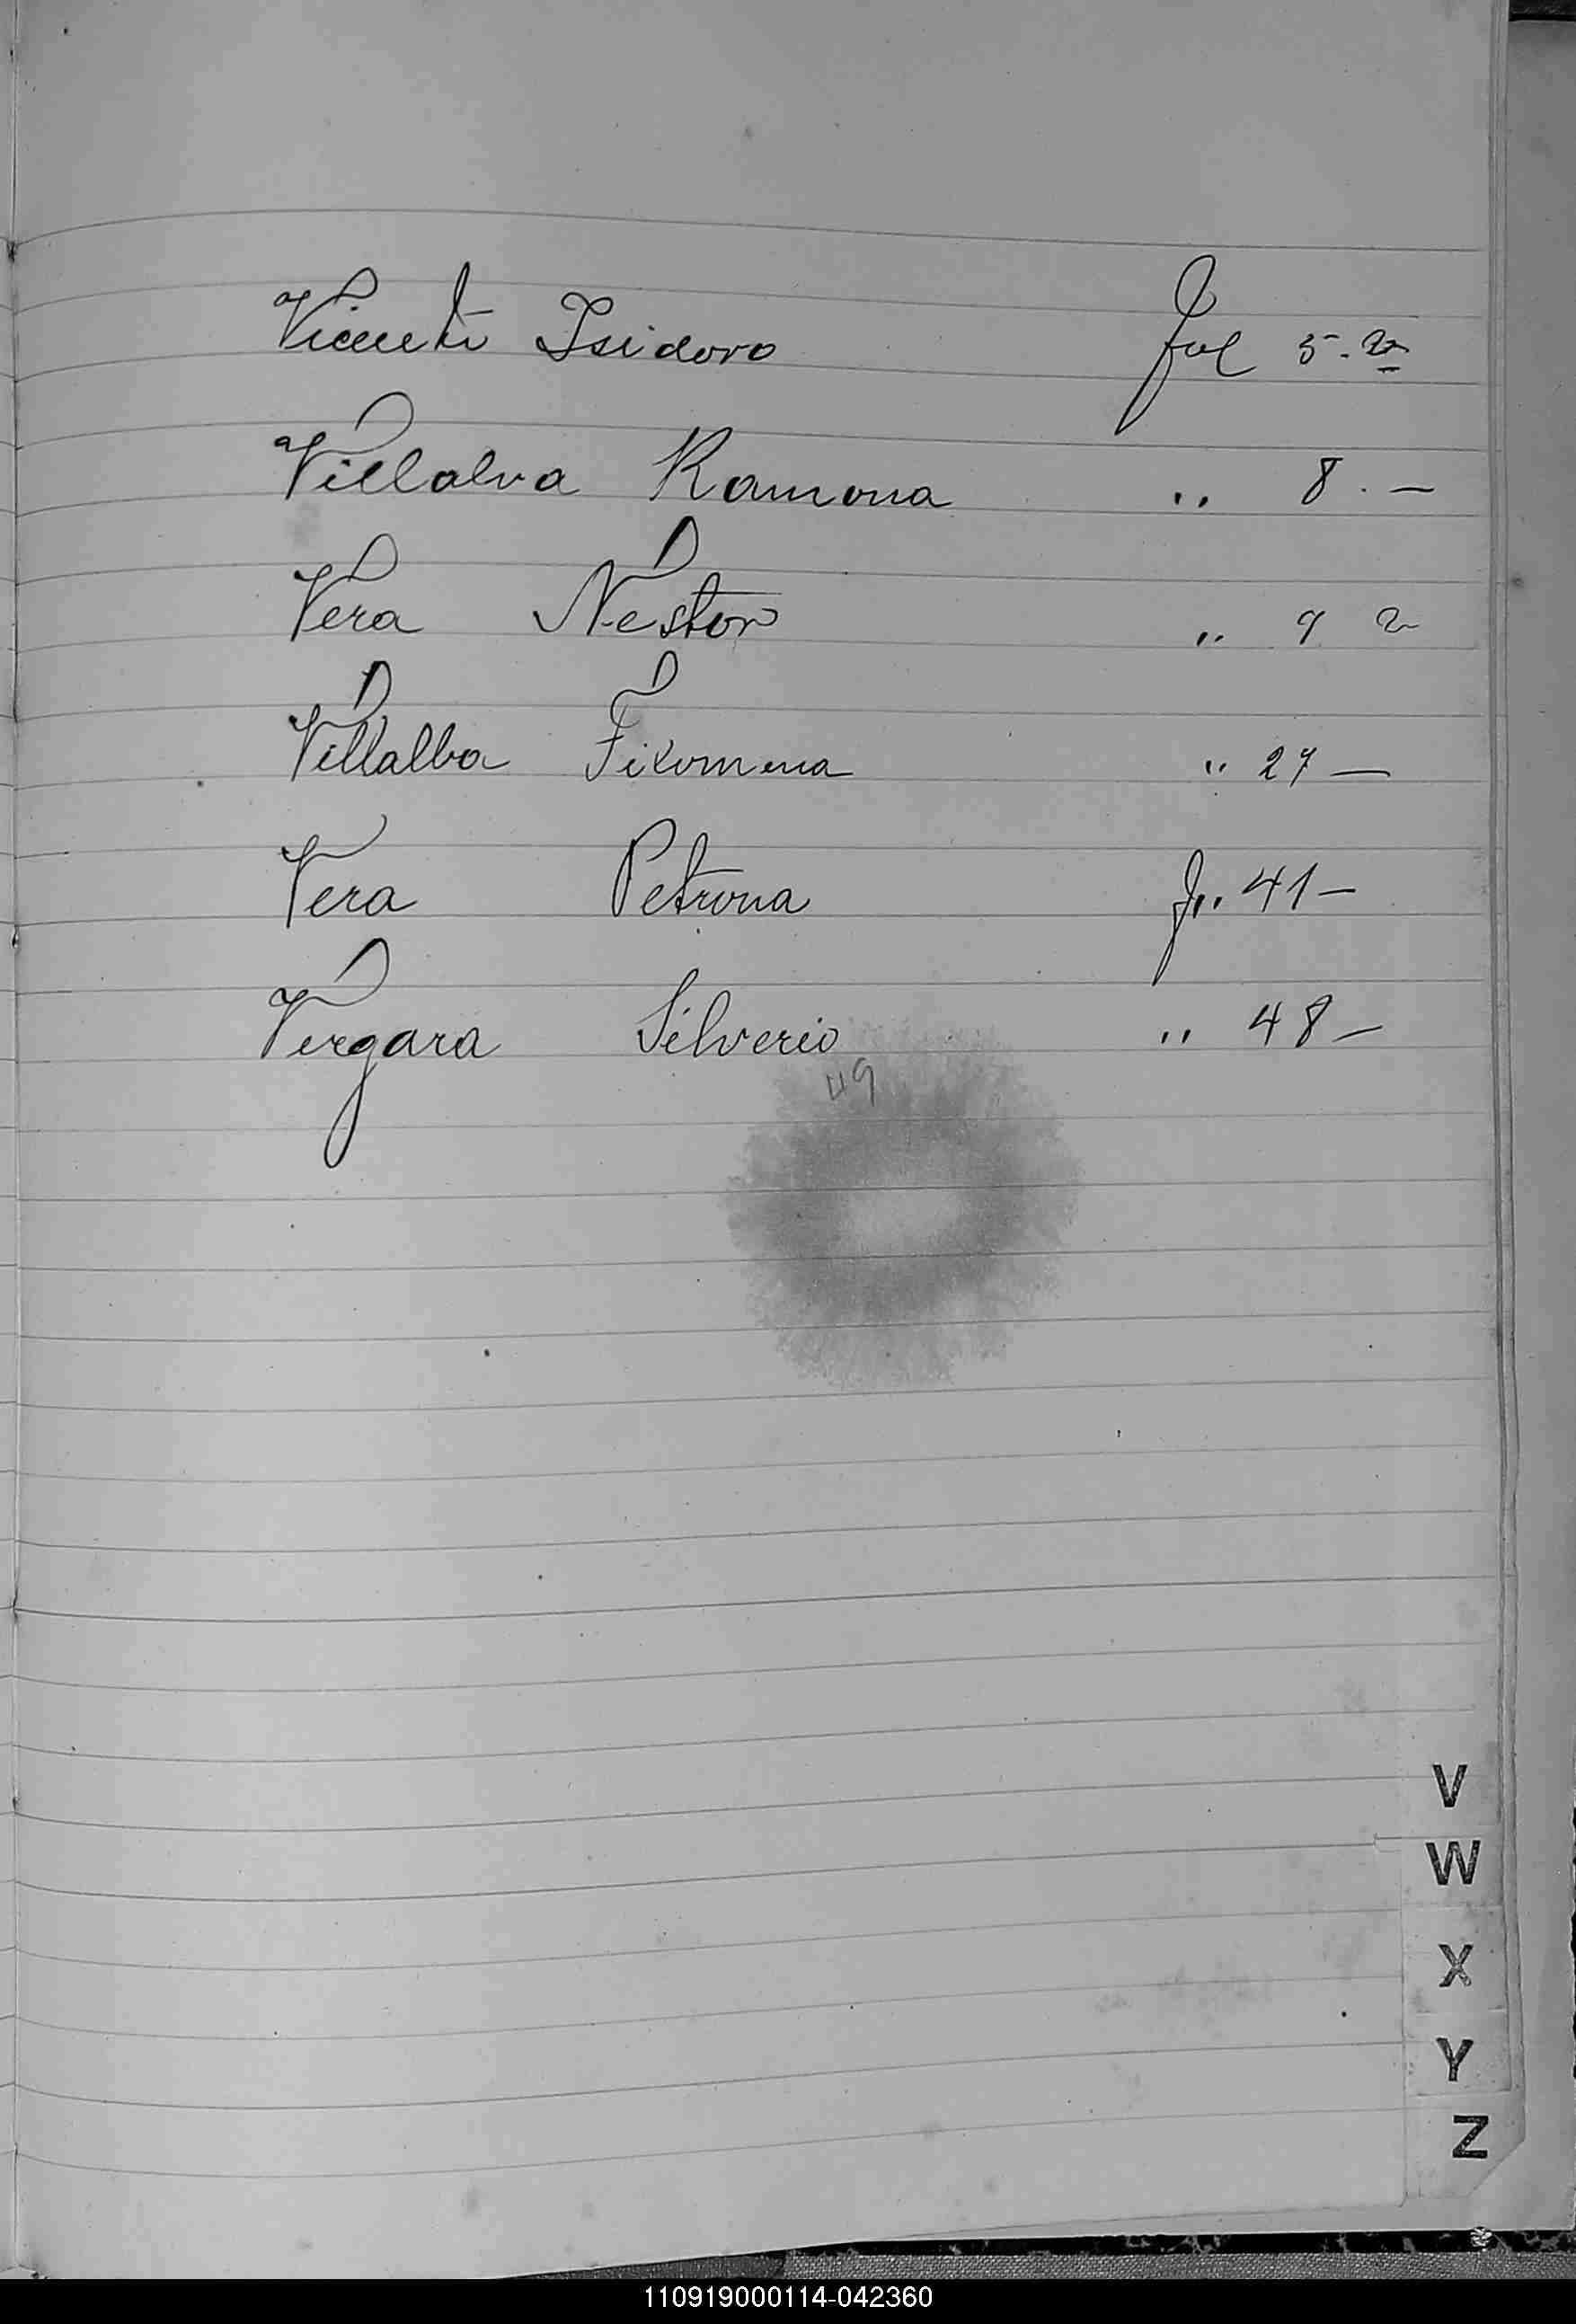 Vicente Isidoro fol 5. v
Villalva Ramona " 8. —
Vera Nestor " 9 v
Villalba Filomena " 27 —
Vera Petrona f " 41 —
Vergara Silverio " 48 —
49
V
W
X
Y
Z
110919000114-042360